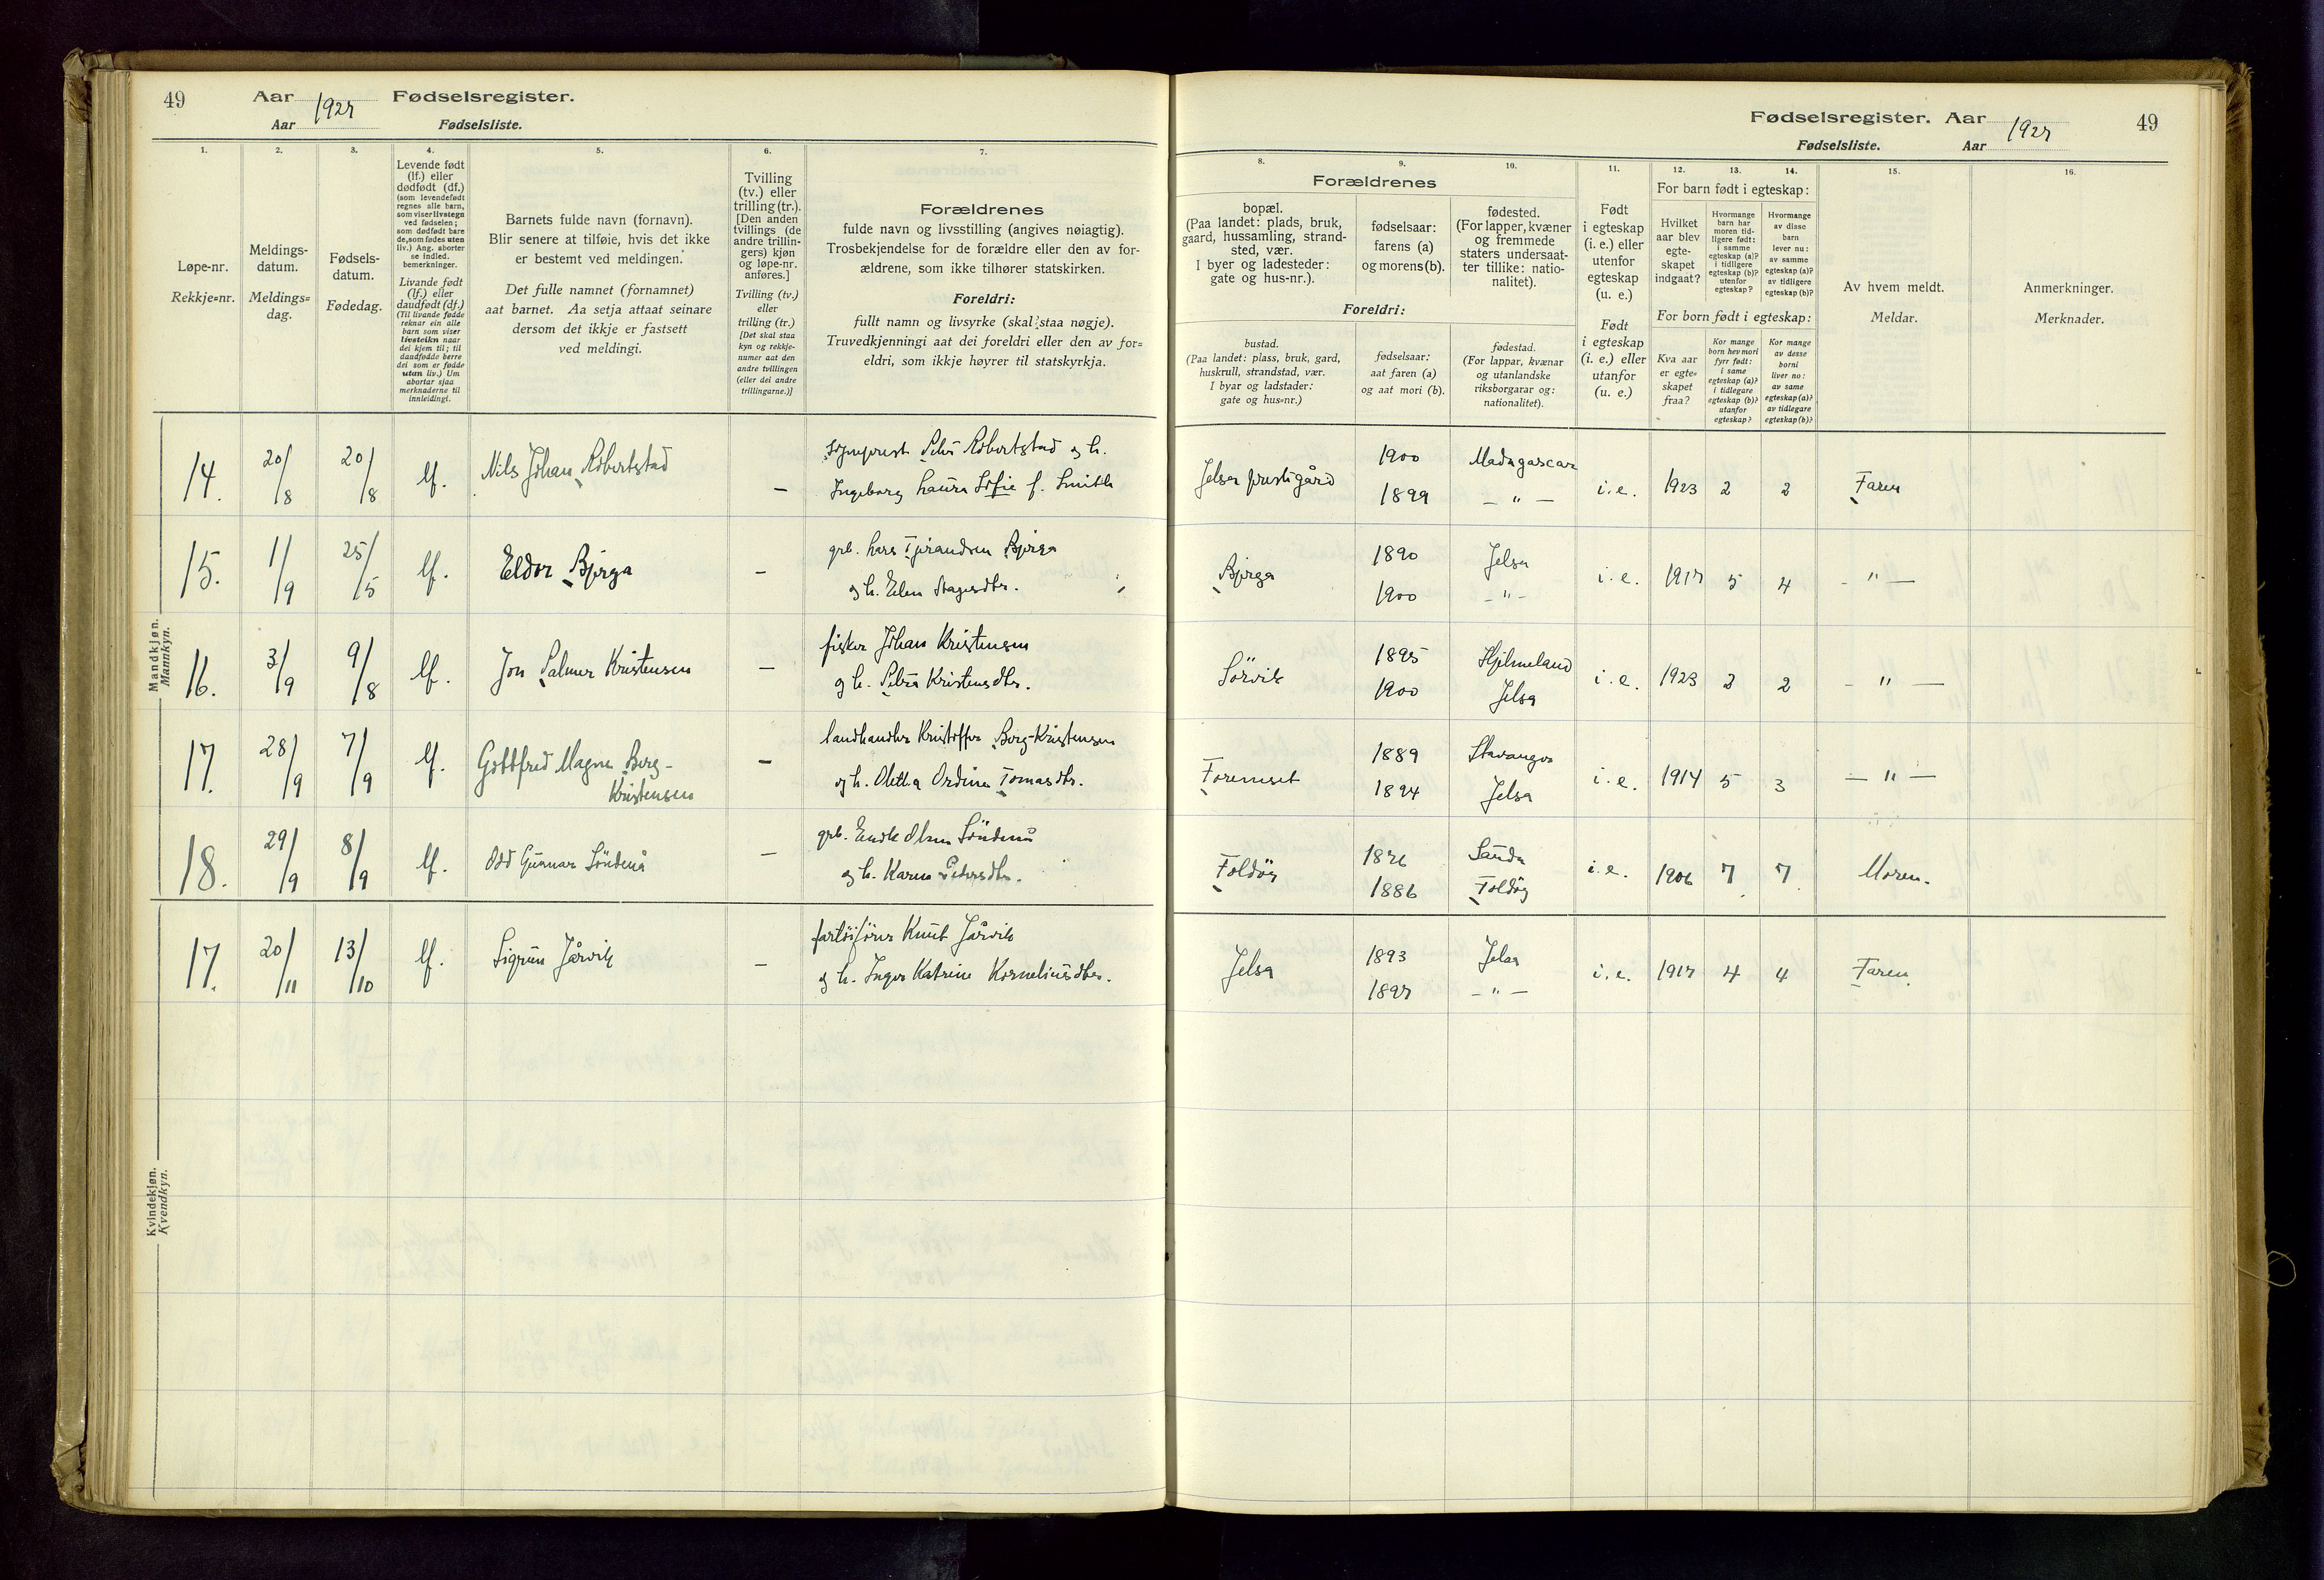 49
Aar 1927 Fødselsregister.
Aar Fødselsliste.
1.
Løpe-nr.
Rekkje=nr.
2.
Meldings-
datum.
Meldings=
dag.
3.
Fødsels-
datum.
Fødedag.
4.
Levende født
(lf.) eller
dødfødt (df.)
(som levendefødt
regnes alle barn,
som viser livstegn
ved fødselen;
som dødfødt bare
de, som fødes uten
liv.) Ang. aborter
se indled.
bemerkninger.
Livande født
(lf.) eller
daudfødt (df.)
(Til livande fødde
reknar ein alle
barn som viser
livsteikn naar
dei kjem til; til
daudfødde berre
dei som er fødde
utan liv.) Um
abortar sjaa
merknaderne til
innleidingi.
5.
Barnets fulde navn (fornavn).
Blir senere at tilføie, hvis det ikke
er bestemt ved meldingen.
Det fulle namnet (fornamnet)
aat barnet. Aa setja attaat seinare
dersom det ikkje er fastsett
ved meldingi.
6.
Tvilling
(tv.) eller
trilling (tr.).
[Den anden
tvillings (de
andre trillin-
gers) kjøn
og løpe-nr.
anføres.]
Tvilling (tv.)
eller
trilling (tr.)
[Det skal staa
kyn og rekkje-
numer aat den
andre tvillingen
(eller dei andre
trillingarne.)]
7.
Forældrenes
fulde navn og livsstilling (angives nøiagtig).
Trosbekjendelse for de forældre eller den av for-
ældrene, som ikke tilhører statskirken.
Foreldri:
fullt namn og livsyrke (skal staa nøgje).
Truvedkjenningi aat dei foreldri eller den av for=
eldri, som ikkje høyrer til statskyrkja.
Mandkjøn.
Mannkyn.
14. 20/8 20/8 lf. Nils Johan Robertstad – sogneprest Peter Robertstad og h.
Ingeborg Laura Sofie f. Smith
15. 1/9 25/5 lf. Eldor Bjørga – grb. Lars Tjerandsen Bjørga
og h. Elen Aagesdtr.
16. 3/9 9/8 lf. Jon Palmer Kristensen – fisker Johan Kristensen
og h. Petra Kristensdtr.
17. 28/9 7/9 lf. Gottfred Magne Berg-
Kristensen – landhandler Kristoffer Berg-Kristensen
og h. Oletta Ordine Tomasdtr.
18. 29/9 8/9 lf. Odd Gunnar Söndenå – grb. Endre Olsen Söndenå
og h. Karen Petersdtr.
Kvindekjøn.
Kvendkyn.
17. 20/11 13/10 lf. Sigrun Jårvik – fartöiförer Knut Jårvik
og h. Inger Katrine Korneliusdtr.
Fødselsregister. Aar 1927 49
Fødselsliste. Aar
8.
9.
10.
Forældrenes
bopæl.
(Paa landet: plads, bruk,
gaard, hussamling, strand-
sted, vær.
I byer og ladesteder:
gate og hus-nr.).
fødselsaar:
farens (a)
og morens (b).
fødested.
(For lapper, kvæner
og fremmede
staters undersaat-
ter tillike: natio-
nalitet).
Foreldri:
bustad.
(Paa landet: plass, bruk, gard,
huskrull, strandstad, vær.
I byar og ladstader:
gate og hus=nr.)
fødselsaar:
aat faren (a)
og aat mori (b).
fødestad.
(For lappar, kvænar
og utanlandske
riksborgarar og:
nationalitet).
11.
Født
i egteskap
(i. e.) eller
utenfor
egteskap
(u. e.)
Født
i egteskap
(i. e.) eller
utanfor
(u. e.)
12.
13.
14.
For barn født i egteskap:
Hvilket
aar blev
egte-
skapet
indgaat?
Hvormange
barn har
moren tid-
ligere født:
i samme
egteskap (a)?
i tidligere
egteskap (b)?
utenfor
egteskap?
Hvormange
av disse
barn
lever nu:
av samme
egteskap (a)?
av tidligere
egteskap (b)?
For born født i egteskap:
Kva aar
er egte=
skapet
fraa?
Kor mange
born hev mori
fyrr født:
i same
egteskap (a)?
i tidlegare
egteskap (b)?
utanfor
egteskap?
Kor mange
av desse
borni
liver no:
av same
egteskap (a)?
av tidlegare
egteskap (b)?
15.
Av hvem meldt.
Meldar.
16.
Anmerkninger.
Merknader.
Jelsa prestigård 1900 Madagascar i. e. 1923 2 2 Faren
1899 – " –
Bjørga 1890 Jelsa i. e. 1917 5 4 – " –
1900 – " –
Sörvik 1895 Hjelmeland i. e. 1923 2 2 – " –
1900 Jelsa
Foreneset 1889 Stavanger i. e. 1914 5 3 – " –
1894 Jelsa
Foldöy 1876 Sauda i. e. 1906 7 7 Moren.
1886 Foldöy
Jelsa 1893 Jelsa i. e. 1917 4 4 Faren.
1897 – " –